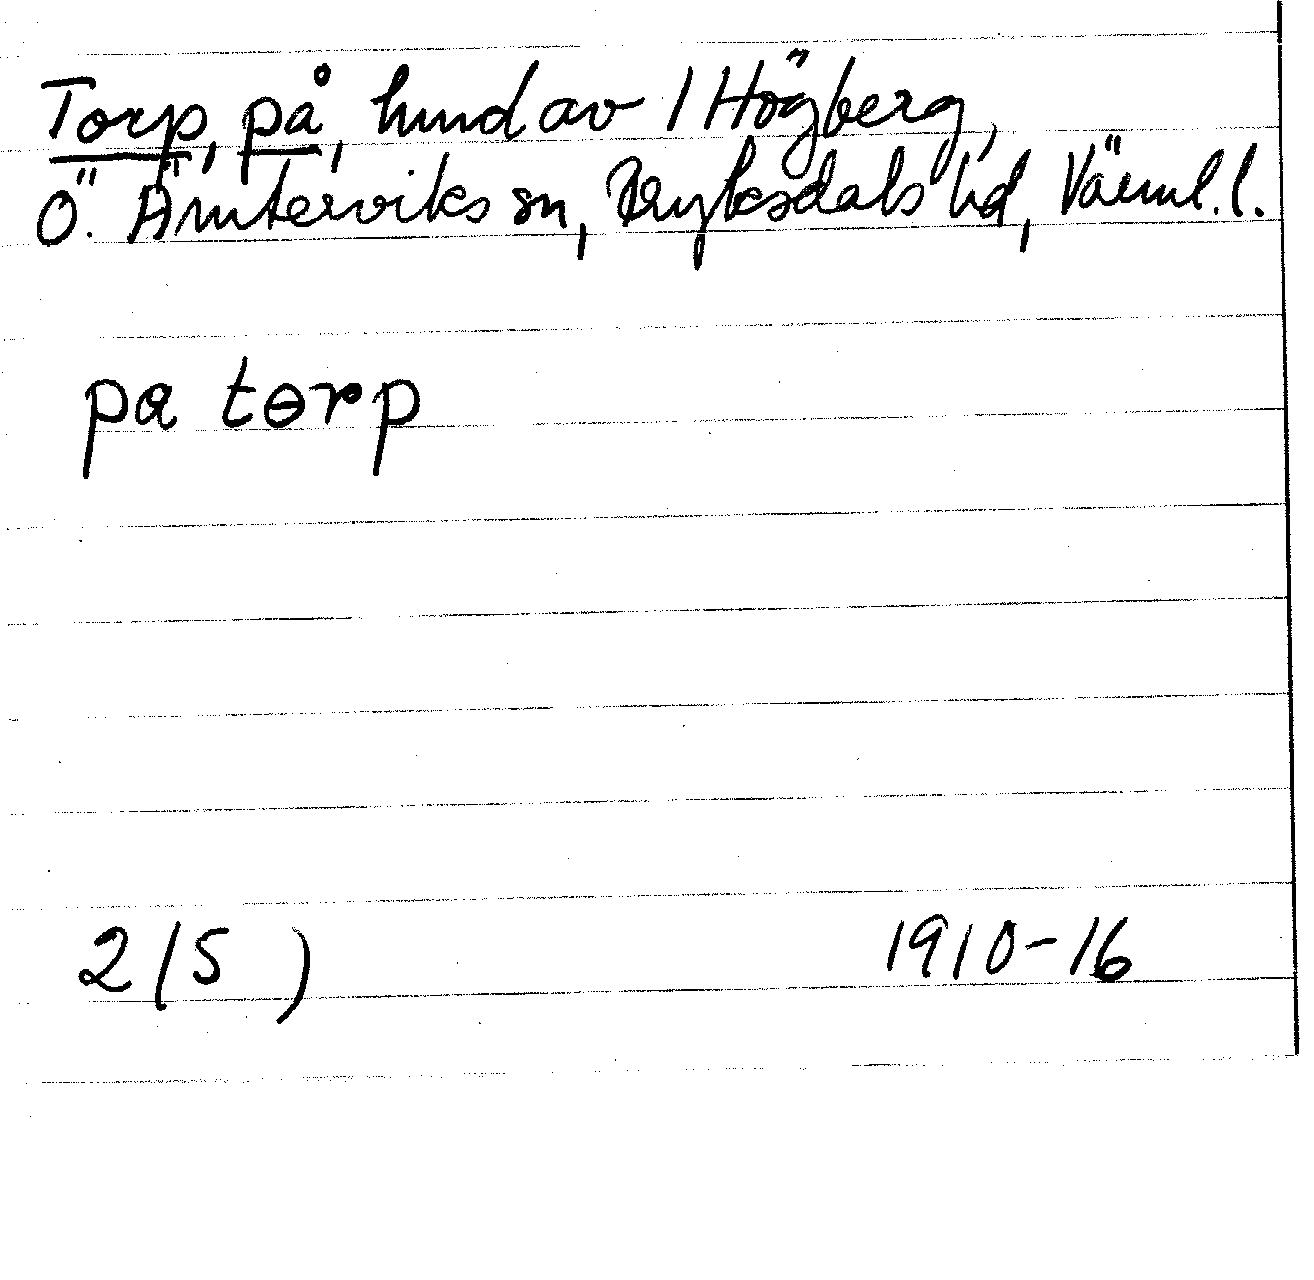 Torp, på, hmd av 1 Högberg,
Ö. Ämterviks sn, Fryksdals hd, Värml. l.
pa tɵrp
2/5 )
1910-16